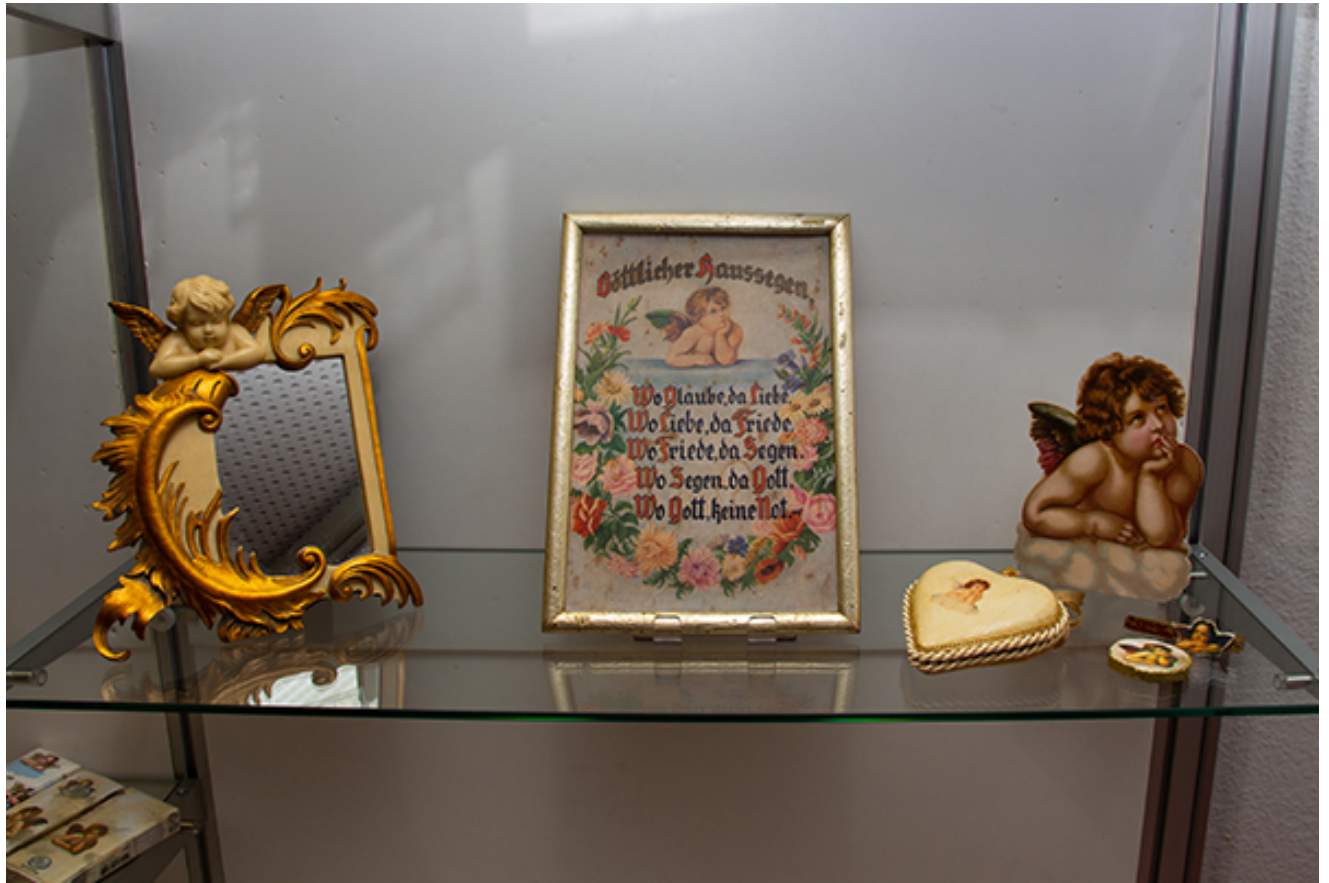 Göttlicher Haussegen.
Wo Glaube, da Liebe.
Wo Liebe, da Friede.
Wo Friede, da Segen.
Wo Segen, da Gott.
Wo Gott, keine Not.-